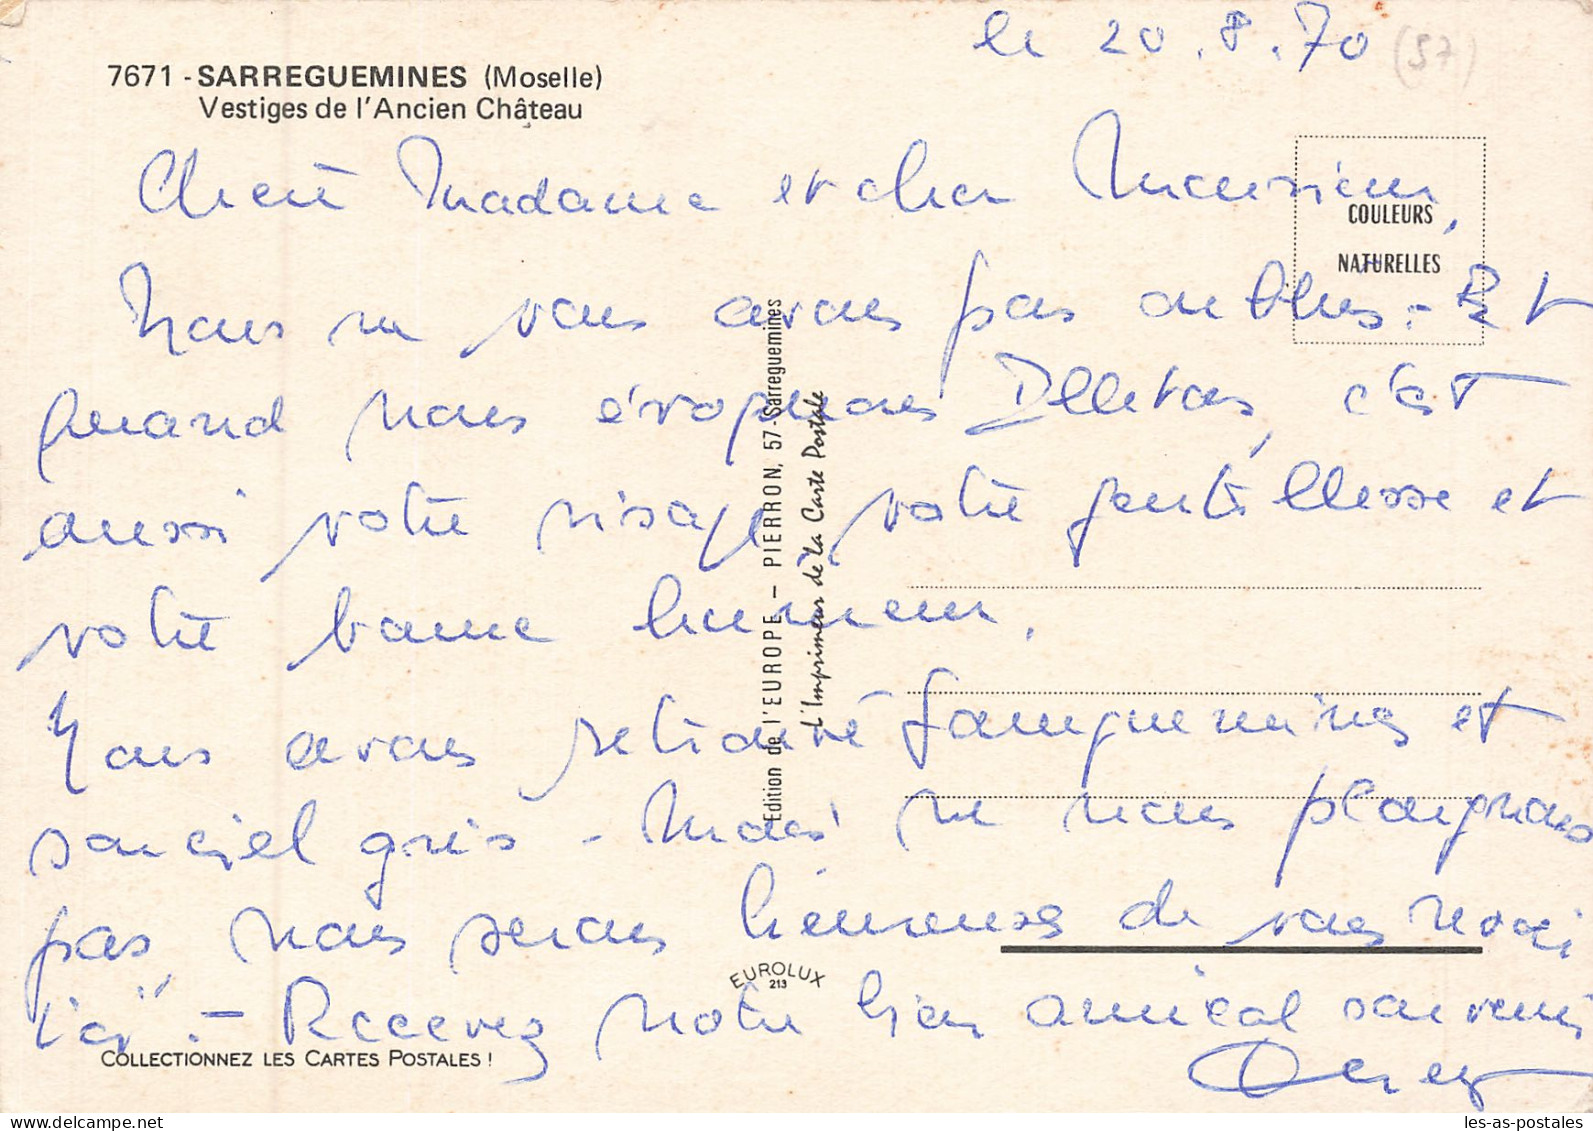 le 20.8.70 (57)
7671 - SARREGUEMINES (Moselle)
Vestiges de l'Ancien Château
Chère Madame et cher Monsieur,
COULEURS
NATURELLES
Nous ne vous avons pas oubliés. - Et
quand nous évoquons c'est
aussi votre visage, votre gentillesse et
votre bonne humeur.
Nous avons retrouvé Sarreguemines et
son ciel gris - Mais ne nous plaignons
pas, nous serons heureuses de vous revoir
ici. - Recevez notre bien amical souvenir
Edition de l'EUROPE - PIERRON, 57-Sarreguemines
L'Imprimeur de la Carte Postale
EUROLUX
213
COLLECTIONNEZ LES CARTES POSTALES !
les-as-postales